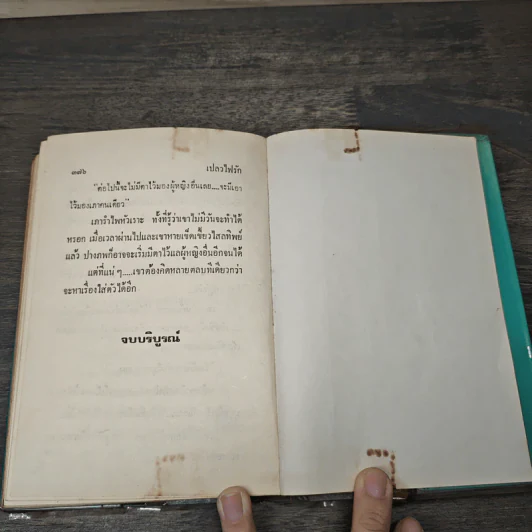 ๓๗๖ เปลวไฟรัก
"ต่อไปนี้จะไม่มีตาไว้มองผู้หญิงอื่นเลย....จะมีเอา
ไว้มองเภาคนเดียว"
เภารำไพหัวเราะ ทั้งที่รู้ว่าเขาไม่มีวันจะทำได้
หรอก เมื่อเวลาผ่านไปและเขาหายเข็ดเขี้ยวไสลทิพย์
แล้ว ปางภพก็อาจจะเริ่มมีตาไว้แลผู้หญิงอื่นอีกจนได้
แต่ที่แน่ ๆ....เขาต้องคิดหลายตลบทีเดียวกว่า
จะหาเรื่องใส่ตัวได้อีก
จบบริบูรณ์